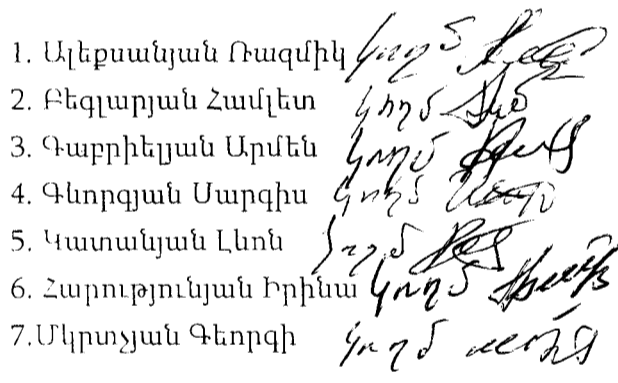 1. Ալեքսանյան Ռազմիկ կողմ
2. Բեգլարյան Համլետ կողմ
3. Գաբրիելյան Արմեն կողմ
4. Գևորգյան Սարգիս կողմ
5. Կատանյան Լևոն կողմ
6. Հարությունյան Իրինա կողմ
7.Մկրտչյան Գեորգի կողմ